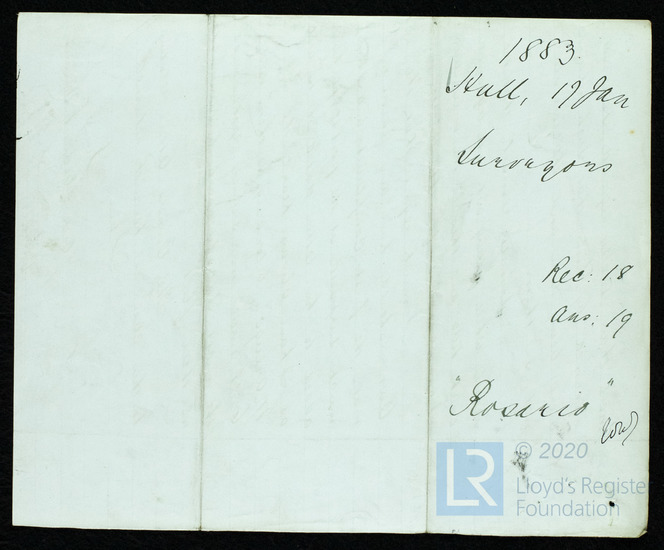 1883.
Hull, 17 Jan
Surveyors
Rec: 18
Ans: 19
"Rosario"
© 2020
LR
Lloyd's Registe
Foundation